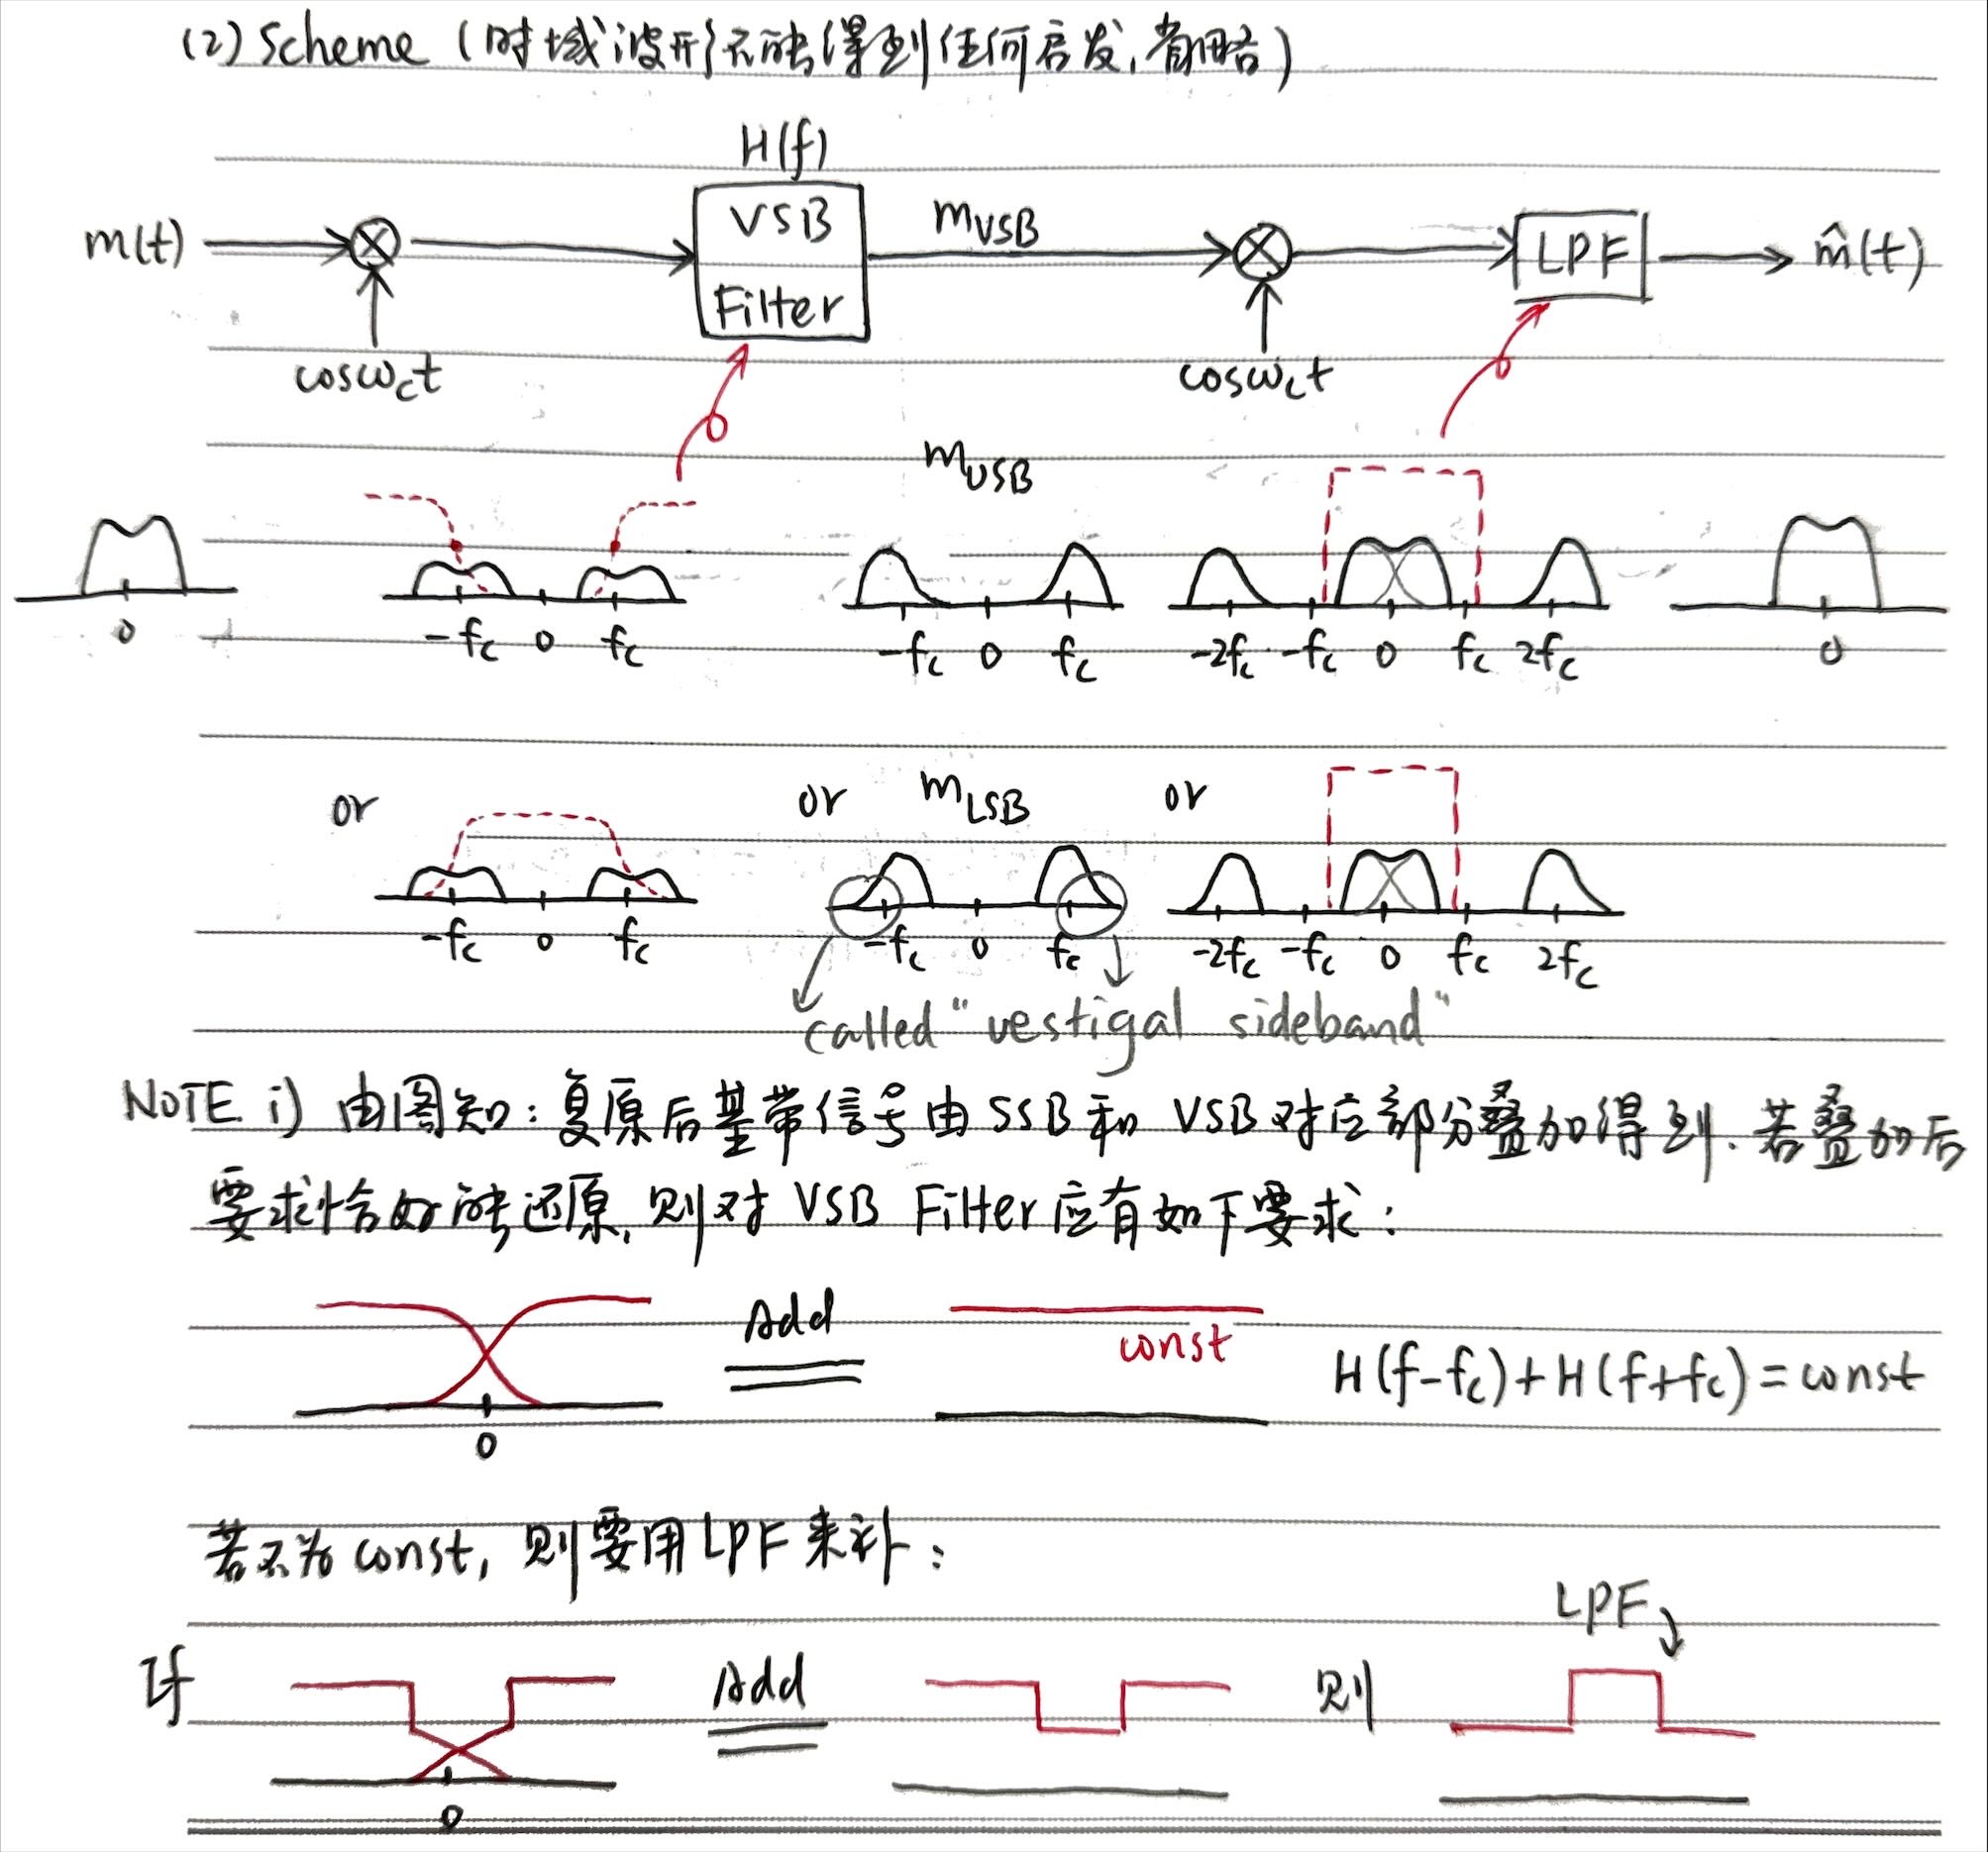 (2) Scheme (时域波形不能得到任何启发,省略)
H(f)
m(t)
VSB
Filter
mVSB
LPF
m̂(t)
cosωct
cosωct
mUSB
0
-fc 0 fc
-fc 0 fc
-2fc -fc 0 fc 2fc
0
or
or mLSB or
-fc 0 fc
-fc 0 fc
-2fc -fc 0 fc 2fc
called "vestigal sideband"
NOTE. i) 由图知:复原后基带信号由SSB和 VSB对应部分叠加得到.若叠加后
要求恰好能还原,则对 VSB Filter应有如下要求:
Add
const
H(f-fc)+H(f+fc)=const
0
若不为const,则要用LPF来补:
LPF
If
Add
则
0